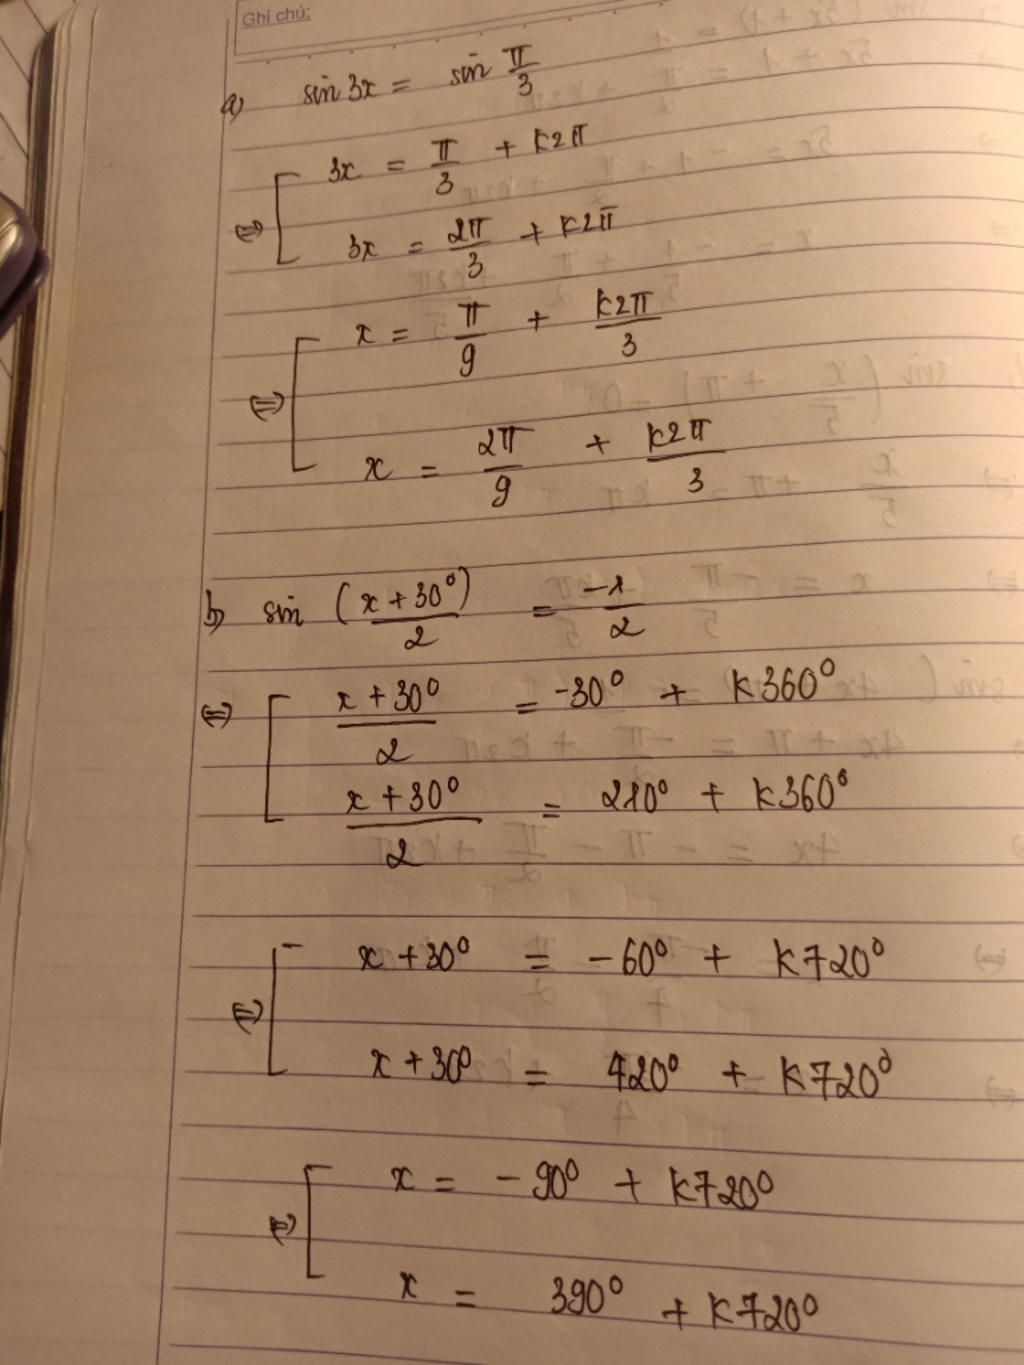 Ghi chú:
a) sin 3x = sin π/3
⇔ [ 3x = π/3 + k2π
3x = 2π/3 + k2π
⇔ [ x = π/9 + k2π/3
x = 2π/9 + k2π/3
b) sin (x + 30°)/2 = -1/2
⇔ [ (x + 30°)/2 = -30° + k360°
(x + 30°)/2 = 210° + k360°
⇔ [ x + 30° = -60° + k720°
x + 30° = 420° + k720°
⇔ [ x = -90° + k720°
x = 390° + k720°